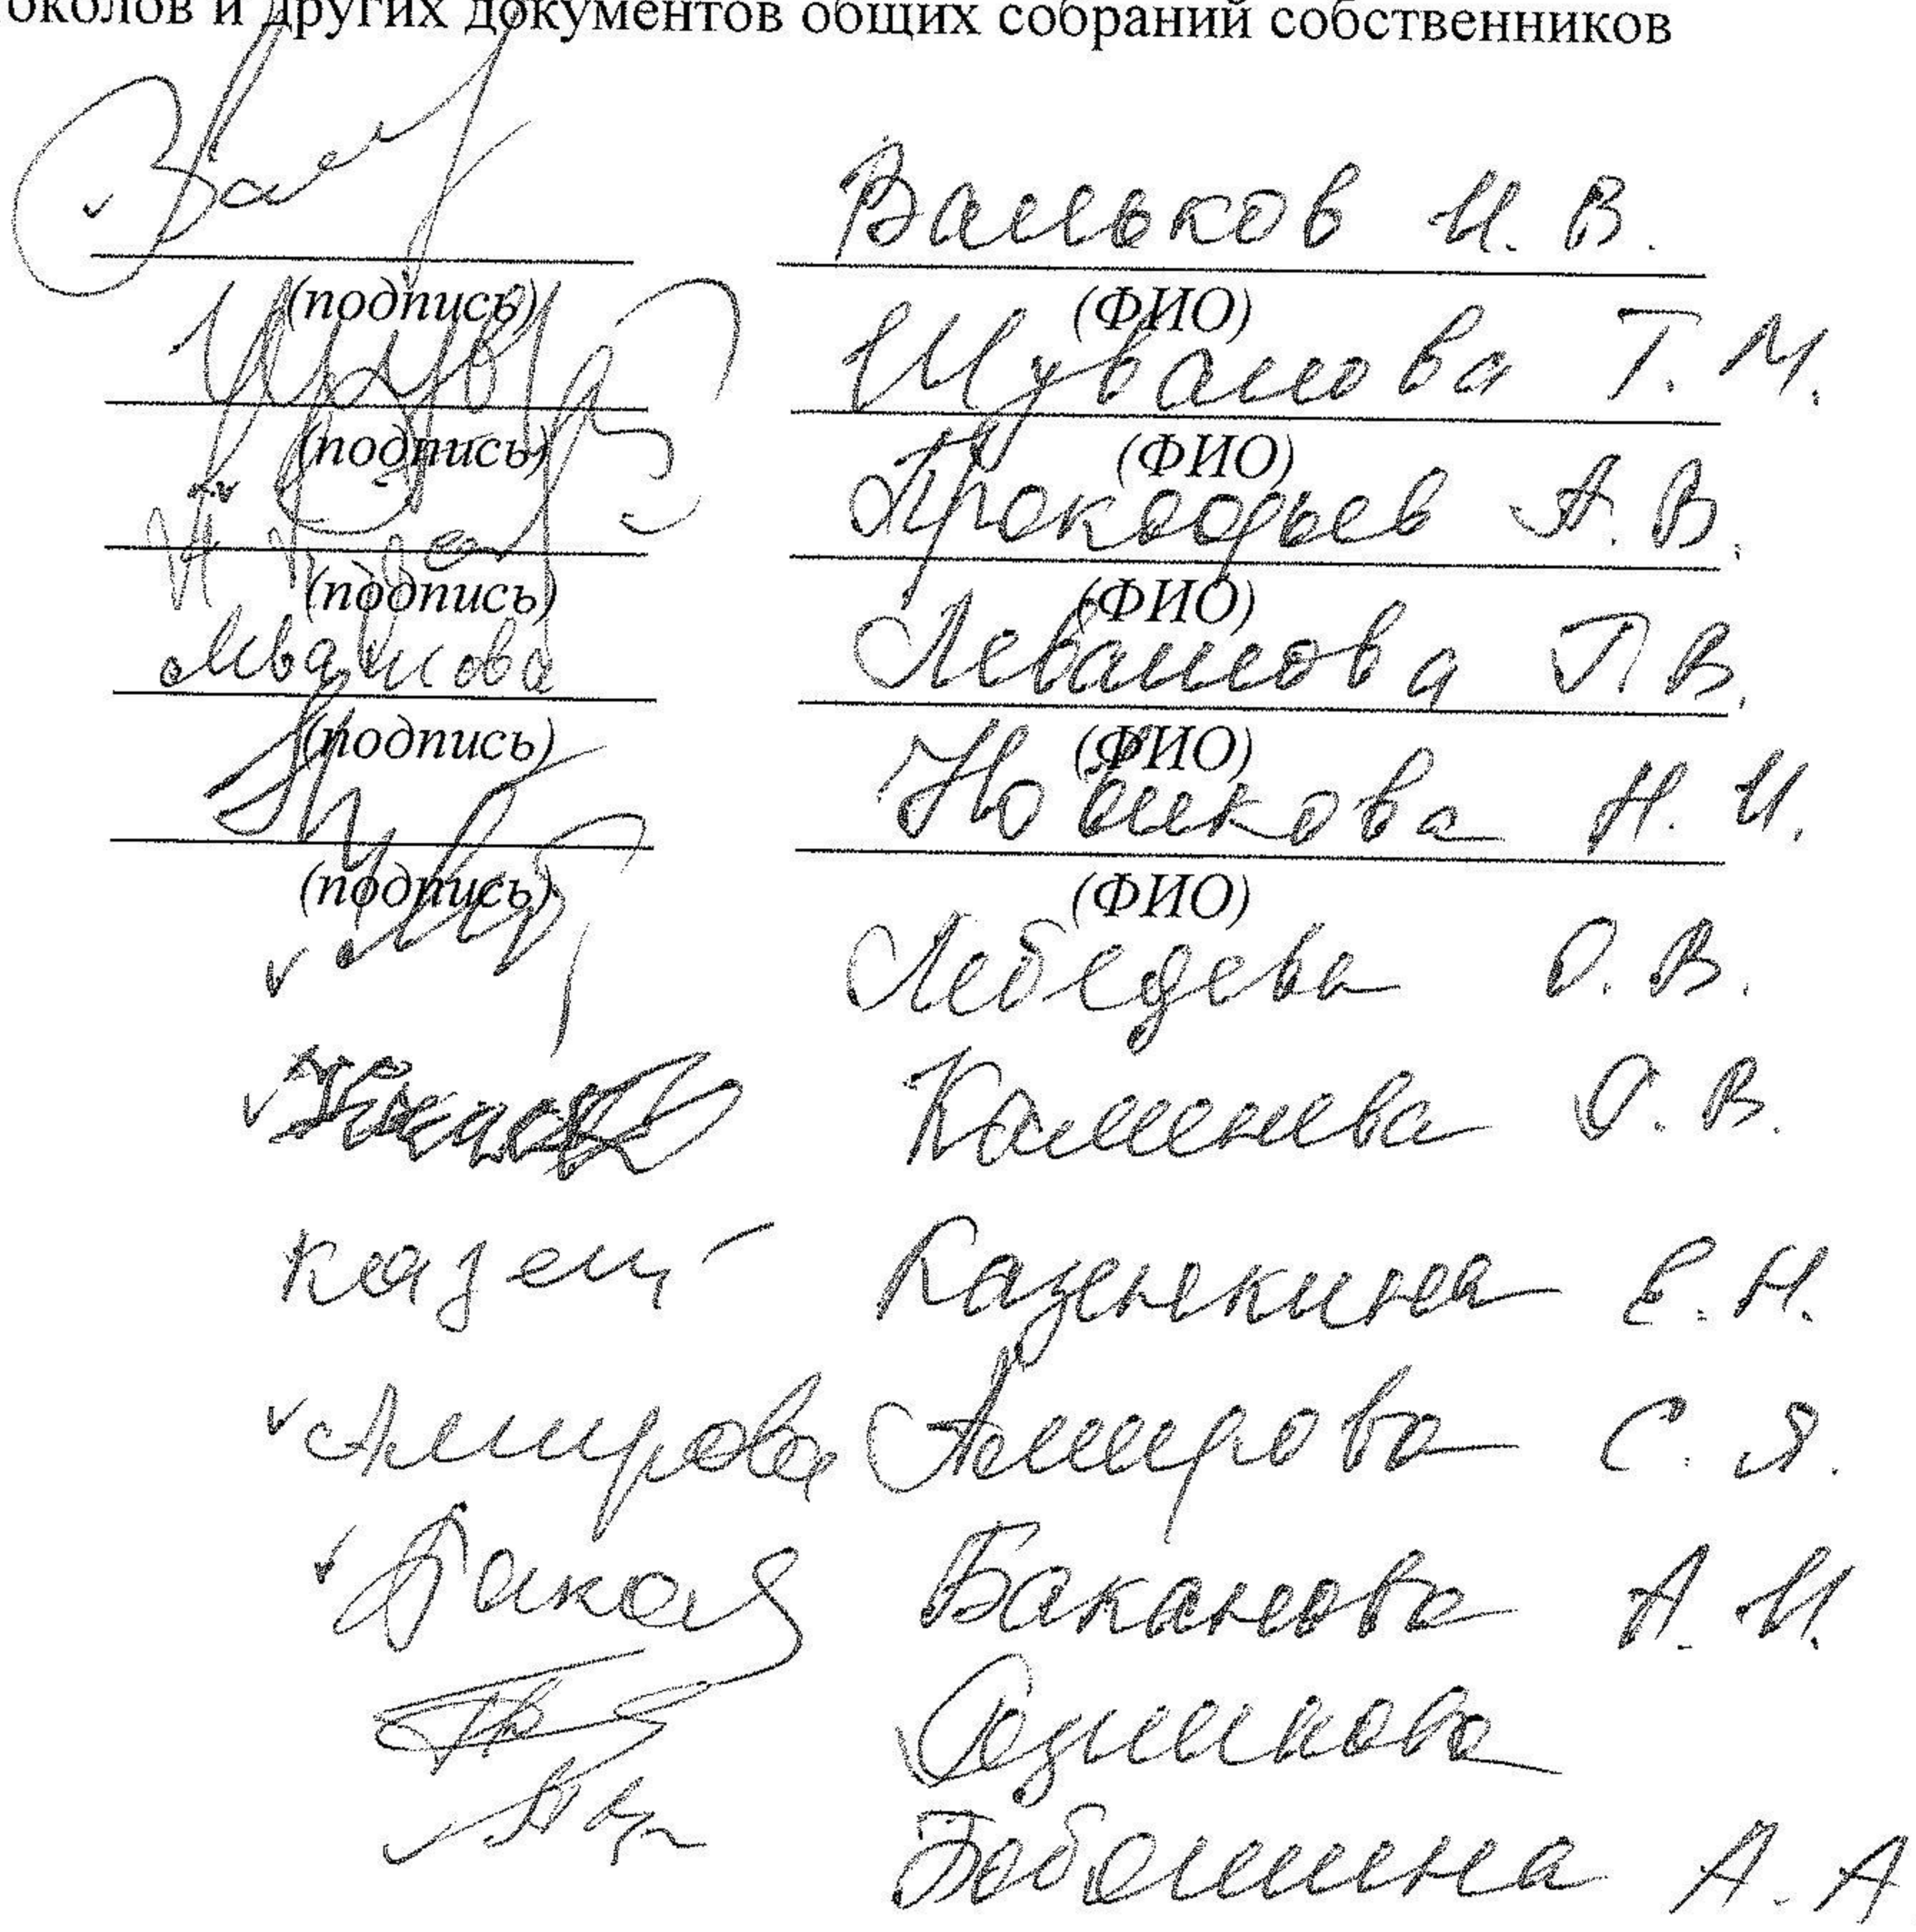 околов и других документов общих собраний собственников
Вальков И. В.
(подпись) (ФИО)
Шувалова Т. М.
(подпись) (ФИО)
Прокофьев А. В.
(подпись) (ФИО)
Левашова Левашова Г. В.
(подпись) (ФИО)
Новикова Н. И.
(подпись) (ФИО)
Лебедева О. В.
Каменева О. В.
Казен Казенкина Е. Н.
Амирова Амирова С. Я.
Бакан Баканова А. И.
Бабошина А. А